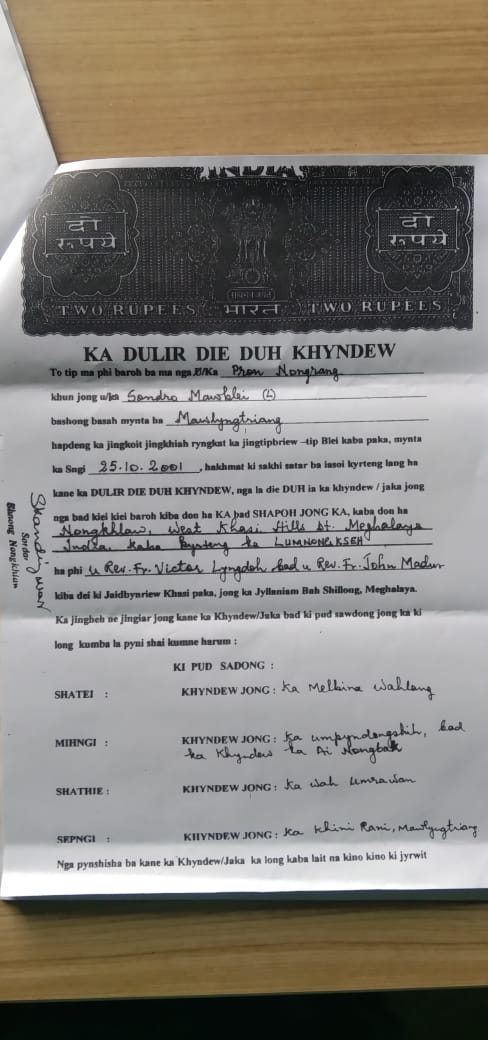 INDIA
दो रुपये
दो रुपये
सत्यमेव जयते
TWO RUPEES भारत TWO RUPEES
KA DULIR DIE DUH KHYNDEW
To tip ma phi baroh ba ma nga U/Ka Phon Nongrang
khun jong u/ka Sondro Mawblei (L)
bashong basah mynta ha Mawlyngtriang
hapdeng ka jingkoit jingkhiah ryngkat ka jingtipbriew –tip Blei kaba paka, mynta
ka Sngi 25.10.2001, hakhmat ki sakhi satar ba iasoi kyrteng lang ha
kane ka DULIR DIE DUH KHYNDEW, nga la die DUH ia ka khyndew / jaka jong
nga bad kiei kiei baroh kiba don ha KA bad SHAPOH JONG KA, kaba don ha
Nongkhlaw, West Khasi Hills Dt. Meghalaya
India, kaba kyrteng ka LUMNONGKSEH
ha phi u Rev. Fr. Victor Lyngdoh bad u Rev. Fr. John Madur
kiba dei ki Jaidbynriew Khasi paka, jong ka Jyllaniam Bah Shillong, Meghalaya.
Ka jingheh ne jingiar jong kane ka Khyndew/Jaka bad ki pud sawdong jong ka ki
long kumba la pyni shai kumne harum :
KI PUD SADONG :
SHATEI : KHYNDEW JONG : Ka Melbina Wahlang
MIHNGI : KHYNDEW JONG : Ka umpyndongshih, bad
ka Khyndew ka Ai Nongbak
SHATHIE : KHYNDEW JONG : Ka Wah Umrawan
SEPNGI : KHYNDEW JONG : Ka Khini Rani, Mawlyngtriang
Nga pynshisha ba kane ka Khyndew/Jaka ka long kaba lait na kino kino ki jyrwit
Sordar